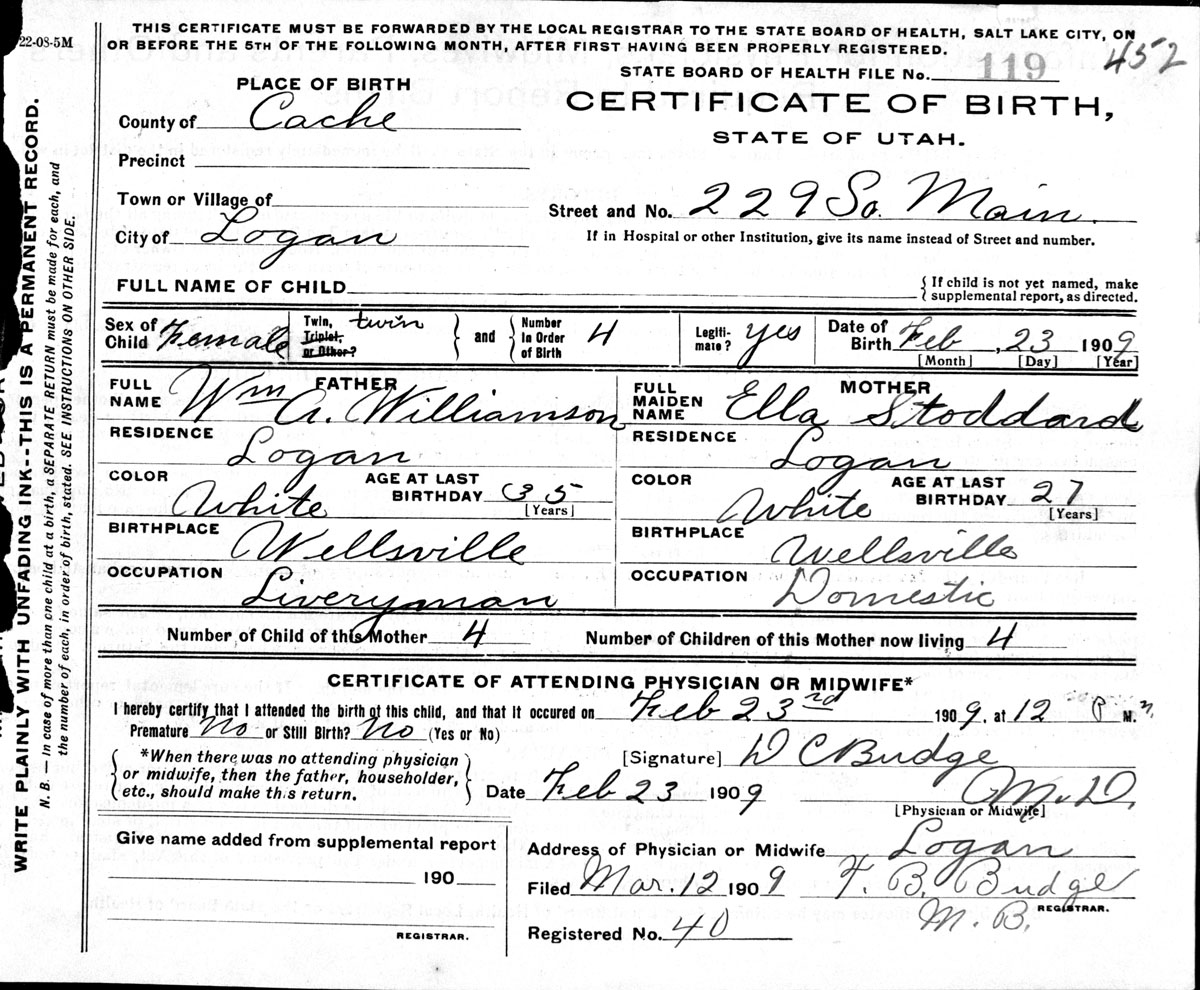 22-08-5M
THIS CERTIFICATE MUST BE FORWARDED BY THE LOCAL REGISTRAR TO THE STATE BOARD OF HEALTH, SALT LAKE CITY, ON
OR BEFORE THE 5TH OF THE FOLLOWING MONTH, AFTER FIRST HAVING BEEN PROPERLY REGISTERED.
452
STATE BOARD OF HEALTH FILE No. 119
PLACE OF BIRTH
CERTIFICATE OF BIRTH,
STATE OF UTAH.
County of Cache
Precinct
Town or Village of
Street and No. 229 So. Main.
City of Logan
If in Hospital or other Institution, give its name instead of Street and number.
FULL NAME OF CHILD
{ If child is not yet named, make
supplemental report, as directed.
Sex of Child Female
Twin, Triplet, or Other? twin
and
Number in Order of Birth 4
Legiti-mate? yes
Date of Birth Feb, 23 1909
[Month] [Day] [Year]
FATHER
FULL NAME Wm A. Williamson
RESIDENCE Logan
COLOR White
AGE AT LAST BIRTHDAY 35
[Years]
BIRTHPLACE Wellsville
OCCUPATION Liveryman
MOTHER
FULL MAIDEN NAME Ella Stoddard
RESIDENCE Logan
COLOR White
AGE AT LAST BIRTHDAY 27
[Years]
BIRTHPLACE Wellsville
OCCUPATION Domestic
Number of Child of this Mother 4 Number of Children of this Mother now living 4
CERTIFICATE OF ATTENDING PHYSICIAN OR MIDWIFE*
I hereby certify that I attended the birth of this child, and that it occured on Feb 23rd 1909, at 12 P M.
Premature No or Still Birth? No (Yes or No)
[Signature] D C Budge
*When there was no attending physician
or midwife, then the father, householder,
etc., should make this return.
Date Feb 23 1909 M.D.
[Physician or Midwife]
Give name added from supplemental report
190
REGISTRAR.
Address of Physician or Midwife Logan
Filed Mar. 12 1909 T. B. Budge
M.B. REGISTRAR.
Registered No. 40
WRITE PLAINLY WITH UNFADING INK--THIS IS A PERMANENT RECORD.
N. B. — In case of more than one child at a birth, a SEPARATE RETURN must be made for each, and
the number of each, in order of birth, stated. SEE INSTRUCTIONS ON OTHER SIDE.